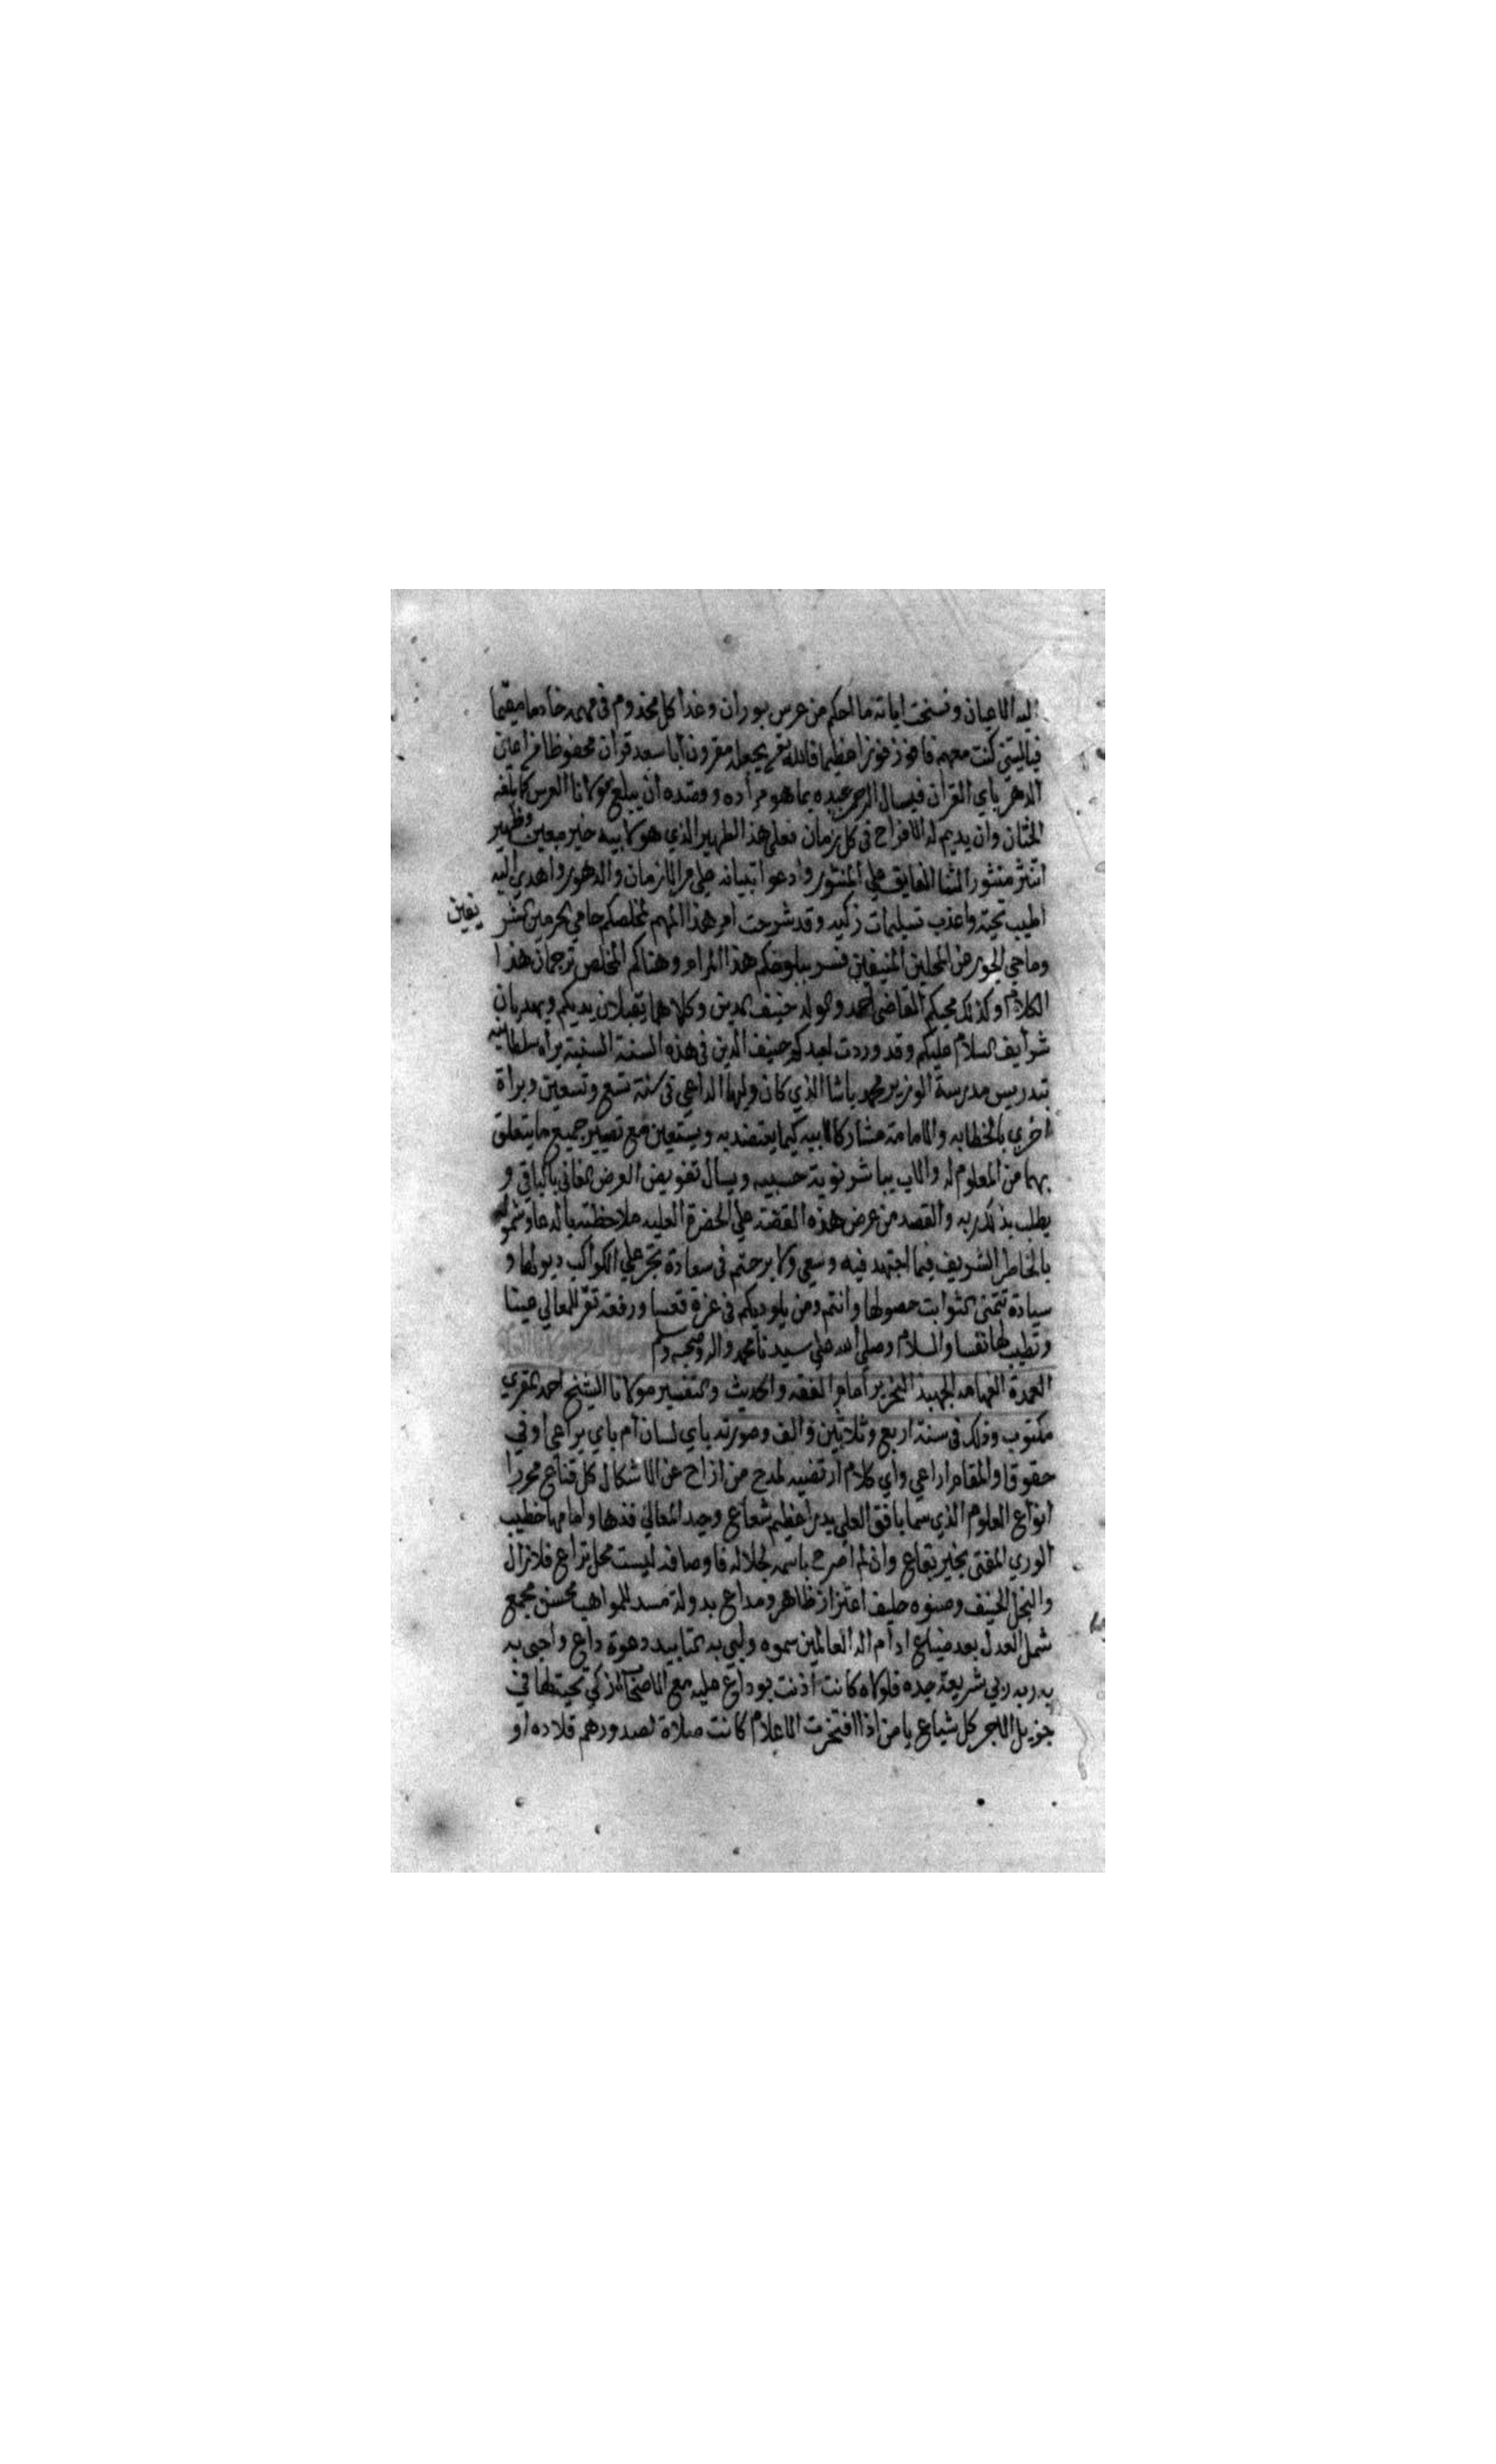 اليه الاعيان ونسخت اياته ما احكم من عرس بوران وغدا كل مخدوم في مهمه خادما مقيما
فياليتني كنت معهم فافوز فوزا عظيما فالله تع يجعله مقرونا باسعد قران محفوظا من اعين
الدهر باي القران فيسال الرحمن عبده بما هو مراده وقصده ان يبلغ مولانا العرس كما بلغه
الختان وان يديم له الافراح في كل زمان فعلى هذا الظهير الذي هو لابيه خير معين وظهير
انثر منثور الثنا الفايق على المنثور وادعوا بتيانه على مر الازمان والدهور واهدي اليه
اطيب تحية واعذب تسليمات زكيه وقد شرحت امر هذا المهم لمخلصكم حامي الحرمين الشر
يفين
وماحي الجور من المحلين المنيفين فسر ببلوغكم هذا المرام وهناكم المخلص ترجمان هذا
الكلام وكذلك محبكم القاضي احمد والولد حنيف الدين وكلاهما يقبلان يديكم ويهديان
شرايف السلام عليكم وقد وردت لعبدكم حنيف الدين في هذه السنة السنية براه سلطانيه
بتدريس مدرسة الوزير محمد باشا الذي كان وليها الداعي في سنة تسع وتسعين وبراة
اخري بالخطابه والامامة مشاركا لابيه كيما يعتضد به ويستعين مع تصيير جميع ما يتعلق
بهما من المعلوم له والاب يباشر نوبته حسبيه ويسال تعويض العرض الفاني بالباقي و
يطلب بذلك ربه والقصد من عرض هذه القصة على الحضرة العليه ملاحظته بالدعا وشموله
بالخاطر الشريف فيما اجتهد فيه وسعي ولا برحتم في سعادة تجر على الكواكب ذيولها و
سيادة تتمنى الثوابت حصولها وانتم ومن يلوذ بكم في عزة قعسا ورفعة تقر للمعالي عينا
وتطيب لها نفسا والسلام وصلى الله على سيدنا محمد واله وصحبه وسلم
العمدة الفهامه الجهبذ النحرير امام الفقه والحديث والتفسير مولانا الشيخ احمد المقري
مكتوب وذلك في سنة اربع وثلاثين والف وصورته باي لسان ام باي يراعي اوفي
حقوقا والمقام اراعي واي كلام ارتضيه لمدح من ازاح عن الاشكال كل قناع محررا
انواع العلوم الذي سما بافق العلى بدرا عظيم شعاع وحيد المعالي فذها وامامها خطيب
الوري المفتى بخير بقاع وان لم اصرح باسمه لجلاله فاوصافه ليست محل نزاع فلا زال
والنجل الحنيف وصنوه حليف اعتزاز ظاهر ومداع بدولة مسد للمواهب محسن مجمع
شمل العدل بعد ضياع ادام اله العالمين سموه ولبى به التاييد دعوة داع واحيى به
به ربه ربي شريعة جده فلولاه كانت اذنت بوداع عليه مع الاصحاب ازكي تحيتها في
جزيل الاجر كل شياع يا من اذا افتخرت الاعلام كانت صلاة لصدورهم قلاده او